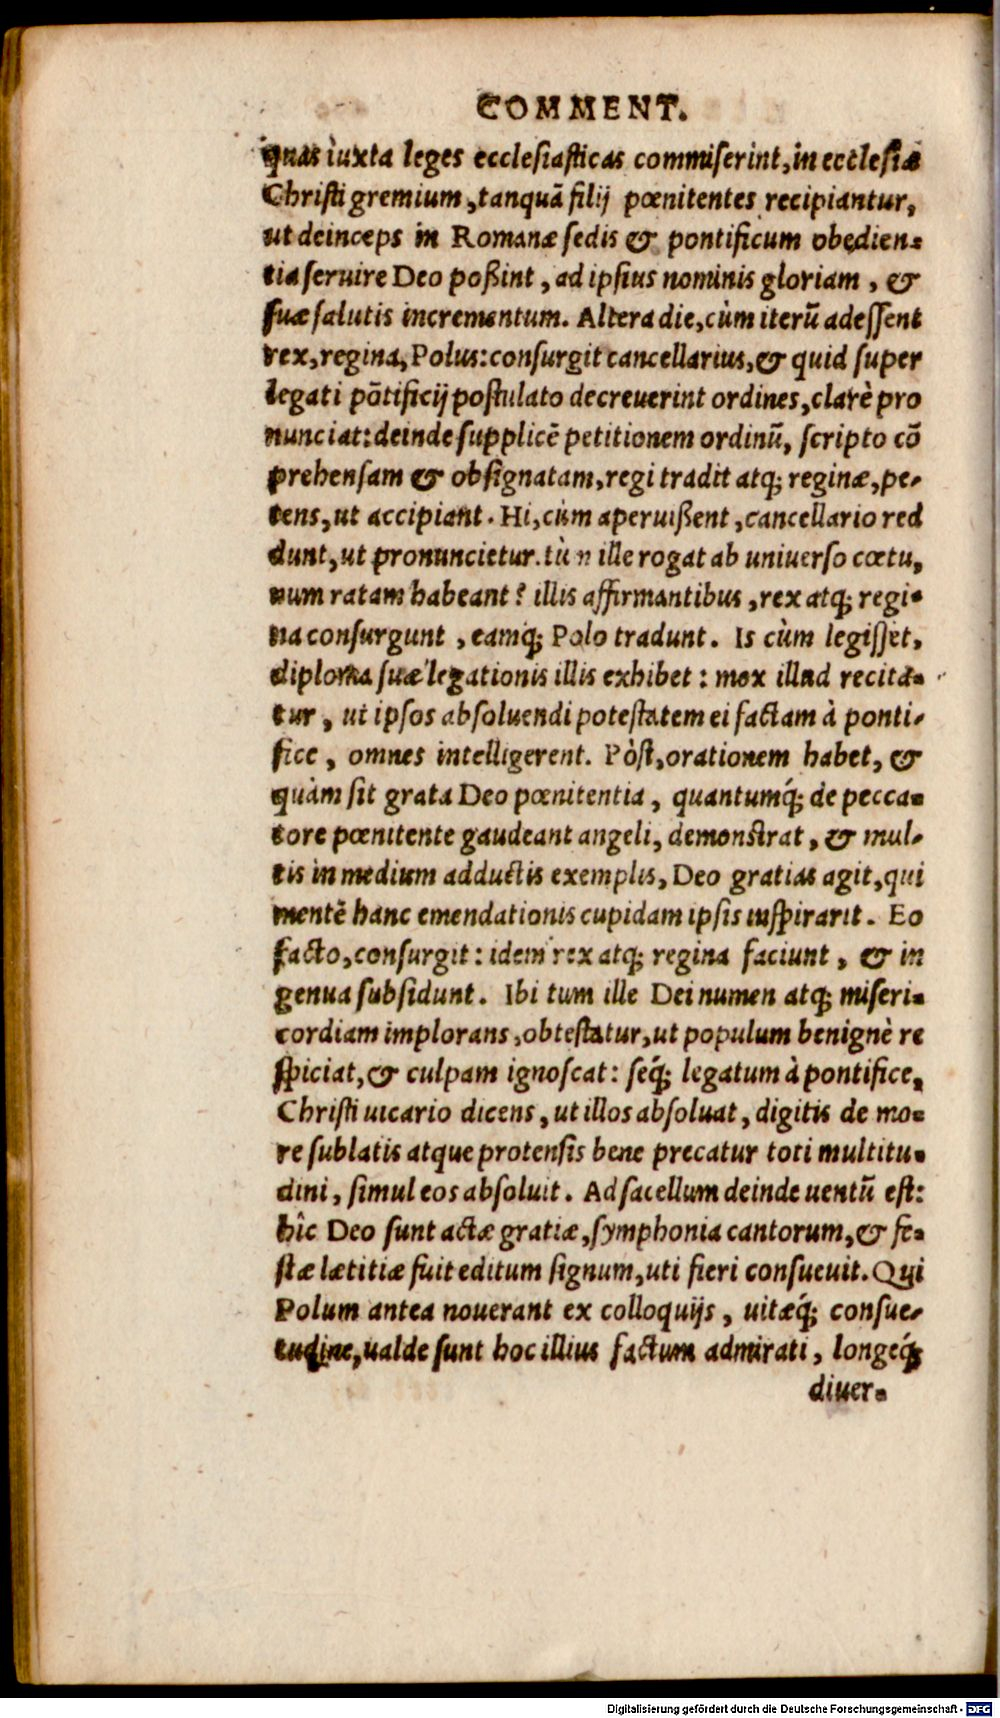 COMMENT.
quas iuxta leges ecclesiasticas commiserint, in ecclesiæ
Christi gremium, tanquã filij pœnitentes recipiantur,
ut deinceps in Romanæ sedis & pontificum obedien-
tia seruire Deo poßint, ad ipsius nominis gloriam, &
suæ salutis incrementum. Altera die, cùm iterũ adessent
rex, regina, Polus: consurgit cancellarius, & quid super
legati põtificij postulato decreuerint ordines, clarè pro
nunciat: deinde supplicẽ petitionem ordinũ, scripto cõ
prehensam & obsignatam, regi tradit atq; reginæ, pe-
tens, ut accipiant. Hi, cùm aperuißent, cancellario red
dunt, ut pronuncietur. tùm ille rogat ab uniuerso cœtu,
num ratam habeant? illis affirmantibus, rex atq; regi-
na consurgunt, eamq; Polo tradunt. Is cùm legisset,
diploma suæ legationis illis exhibet: mox illud recita-
tur, ut ipsos absoluendi potestatem ei factam à ponti-
fice, omnes intelligerent. Pòst, orationem habet, &
quàm sit grata Deo pœnitentia, quantumq́; de pecca-
tore pœnitente gaudeant angeli, demonstrat, & mul-
tis in medium adductis exemplis, Deo gratias agit, qui
mentẽ hanc emendationis cupidam ipsis inspirarit. Eo
facto, consurgit: idem rex atq; regina faciunt, & in
genua subsidunt. Ibi tum ille Dei numen atq; miseri-
cordiam implorans, obtestatur, ut populum benignè re
spiciat, & culpam ignoscat: seq́; legatum à pontifice,
Christi uicario dicens, ut illos absoluat, digitis de mo-
re sublatis atque protensis bene precatur toti multitu-
dini, simul eos absoluit. Ad sacellum deinde uentũ est:
hîc Deo sunt actæ gratiæ, symphonia cantorum, & fe-
stæ lætitiæ fuit editum signum, uti fieri consueuit. Qui
Polum antea nouerant ex colloquijs, uitæq́; consue-
tudine, ualde sunt hoc illius factum admirati, longeq́;
diuer-
Digitalisierung gefördert durch die Deutsche Forschungsgemeinschaft - DFG